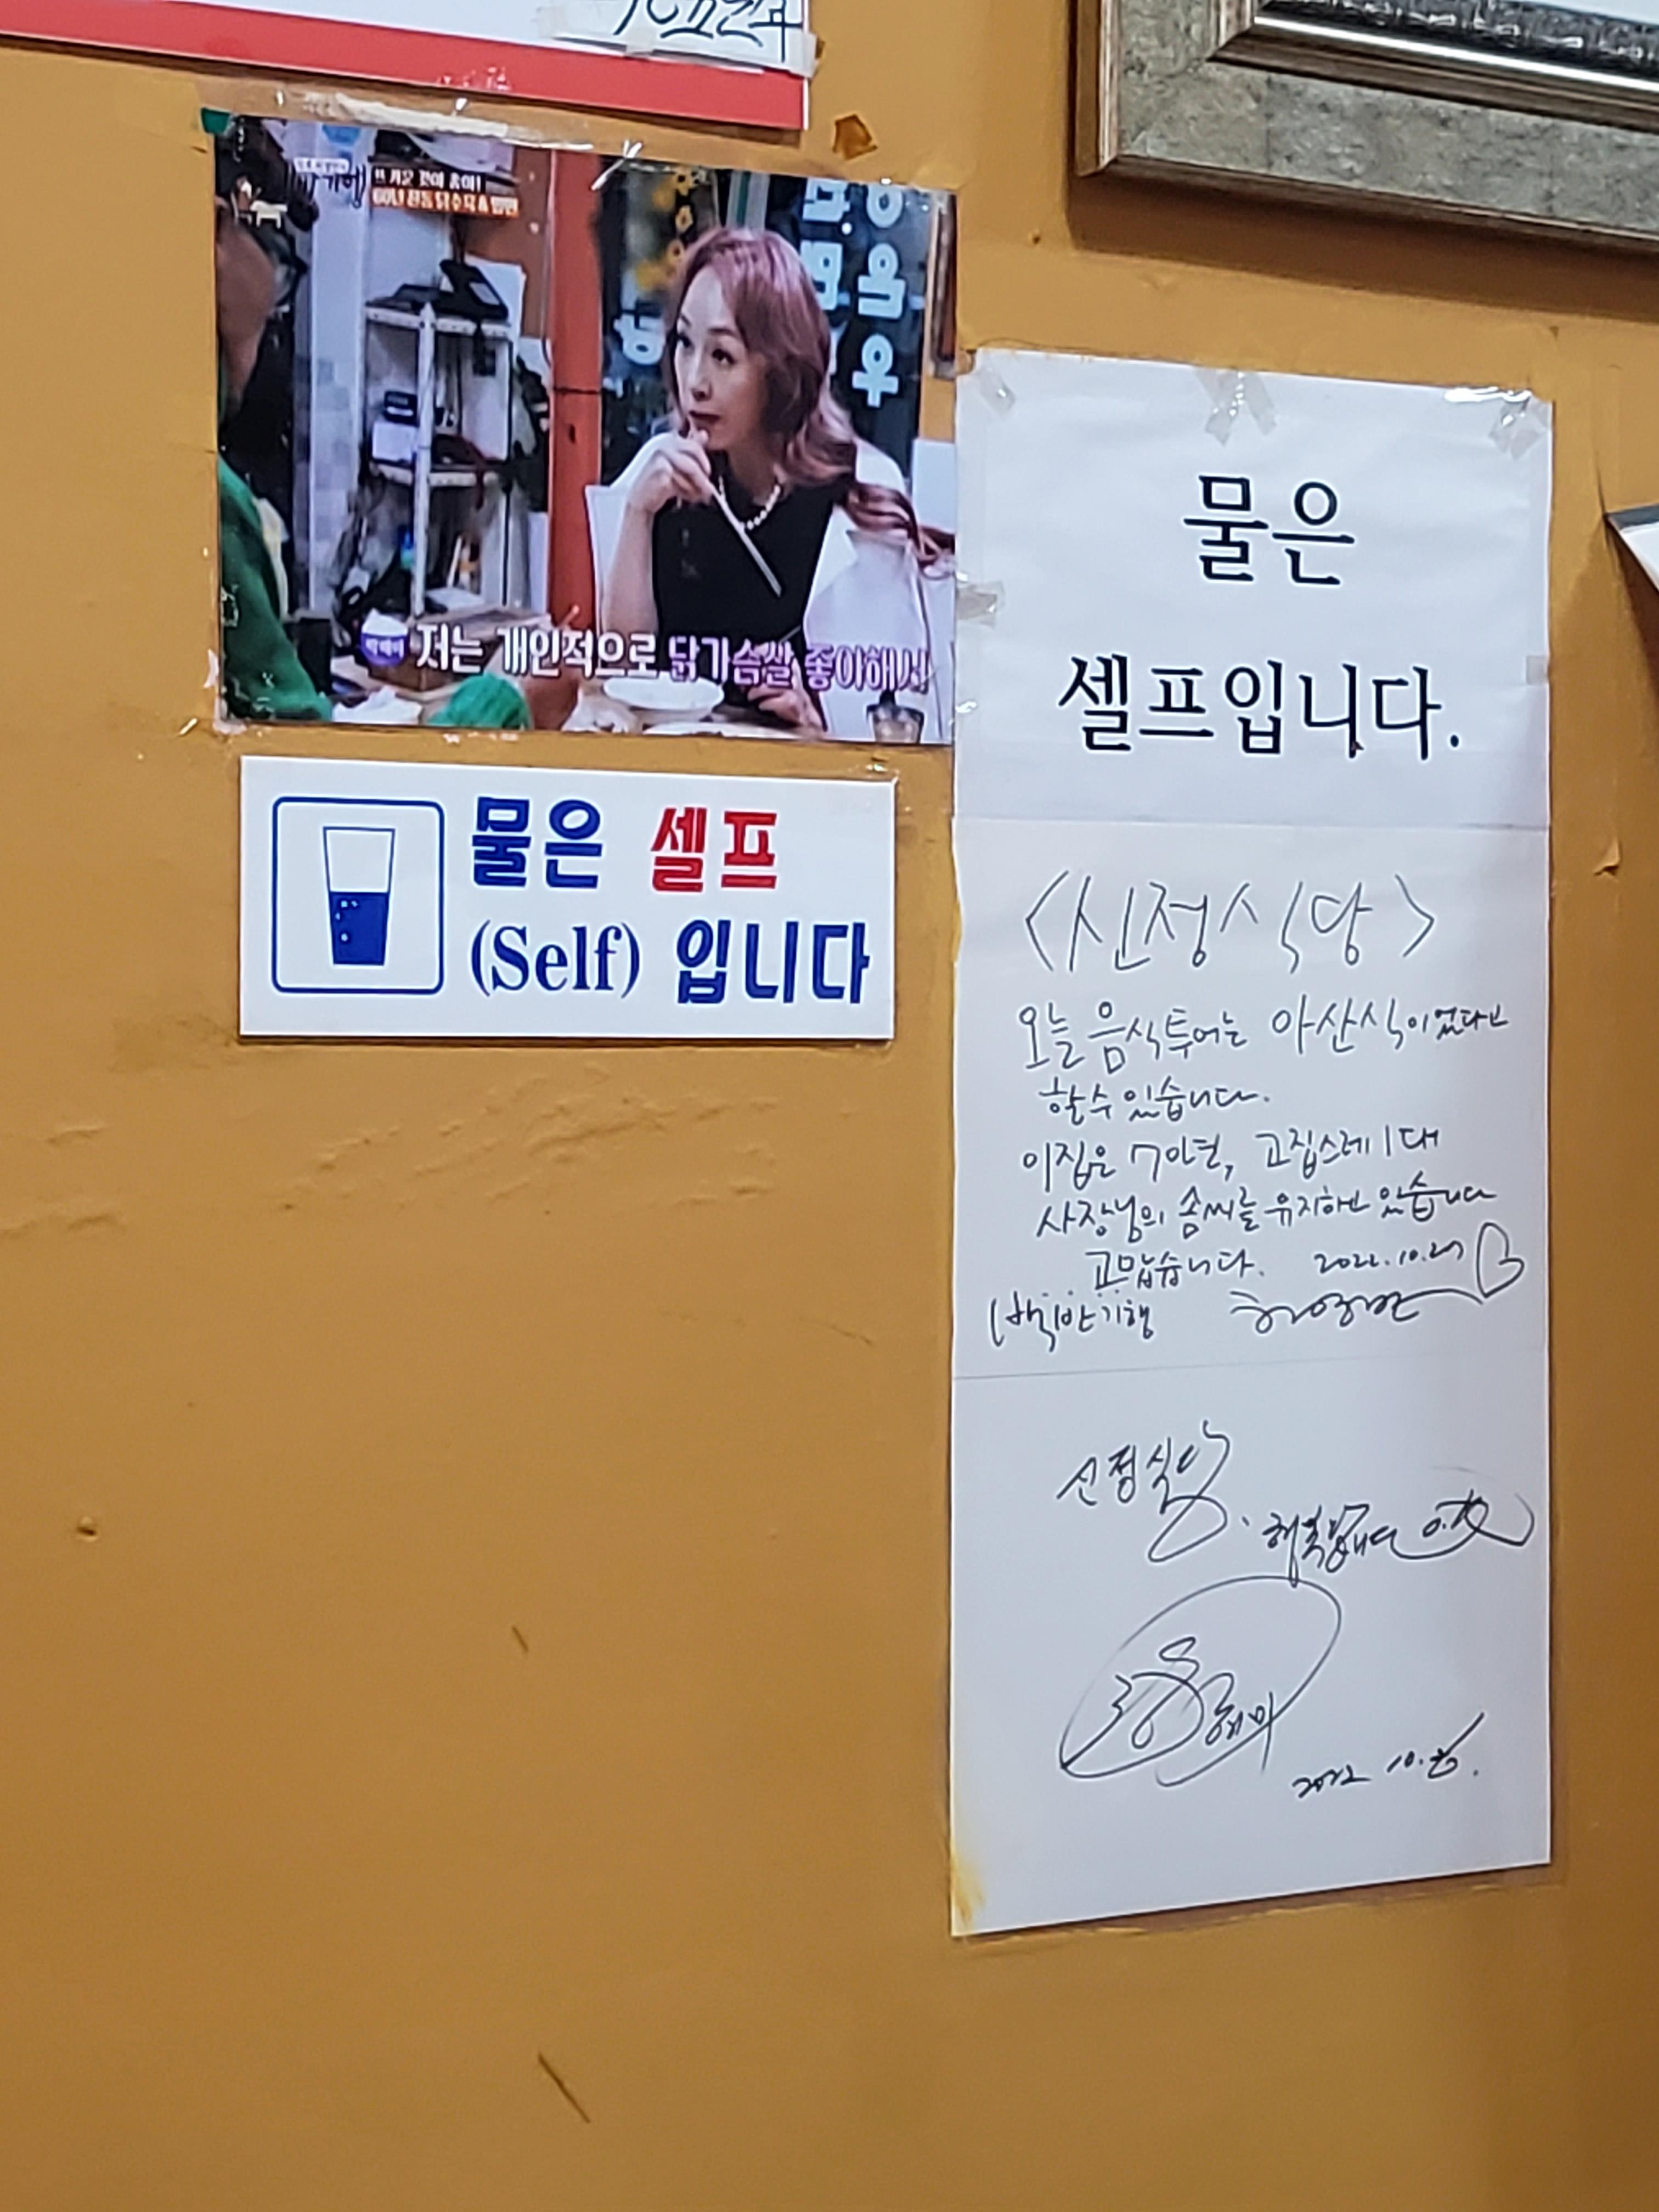 뜨거운 것이 좋아!
60년 전통 닭수육 & 밀면
저는 개인적으로 닭가슴살 좋아해서
물은 셀프
(Self) 입니다
물은
셀프입니다.
<신정식당>
오늘 음식투어는 아산식이었다고
할 수 있습니다.
이집은 70년, 고집스레 1대
사장님의 솜씨를 유지하고 있습니다
고맙습니다. 2022.10.
백반기행
신정식당
2022 10.